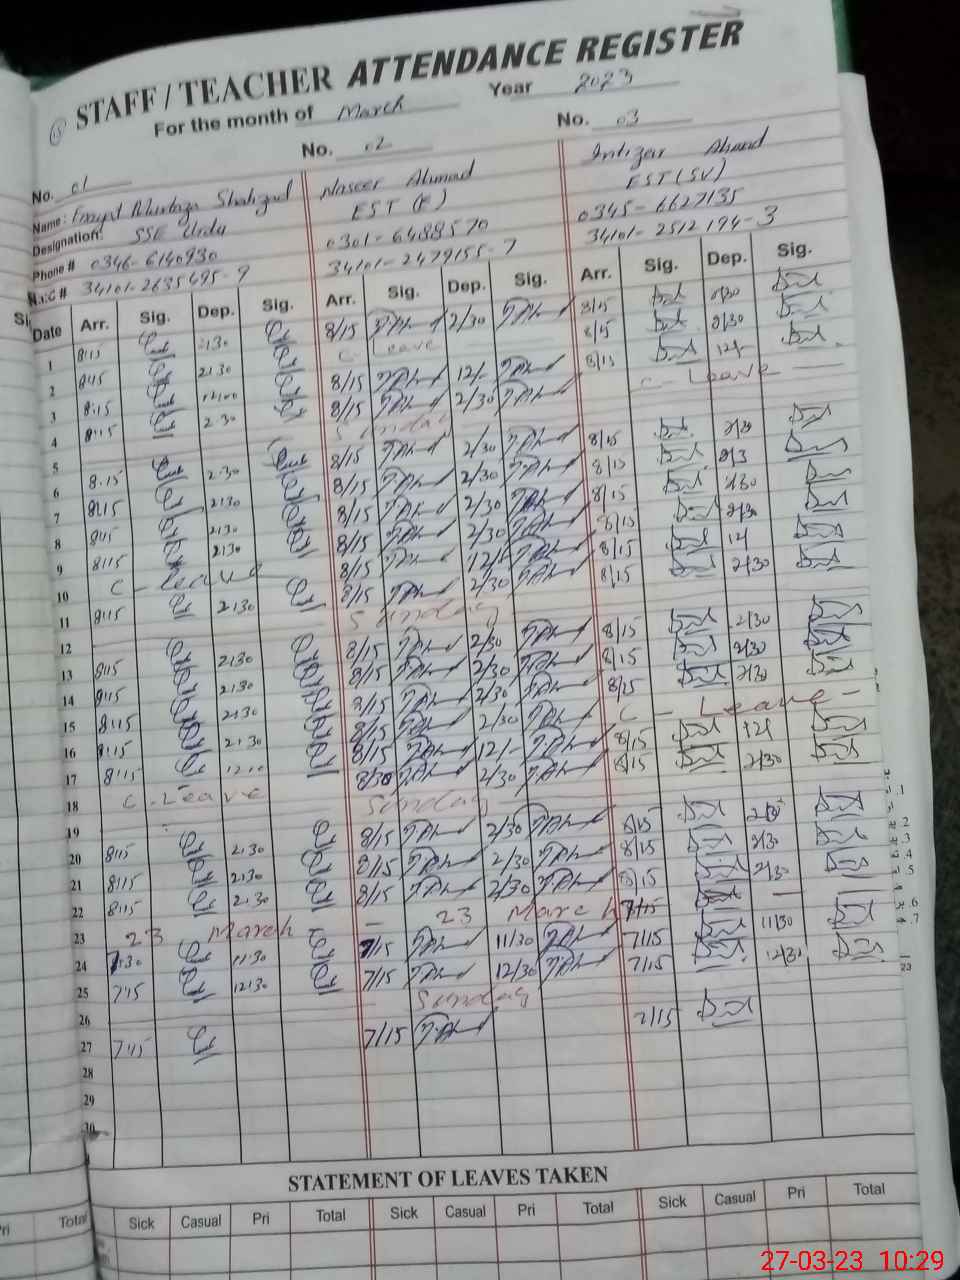 STAFF / TEACHER ATTENDANCE REGISTER
For the month of March Year 2023
No. 01 No. 02 No. 03
Name: Shahzad Naseer Ahmad Intizar Ahmad
Designation: SSE Urdu EST (E) EST (SV)
Phone # 0346-6140930 0301-6488570 0345-6627135
N.I.C # 34101-2635695-9 34101-2479155-7 34101-2512194-3
Date Arr. Sig. Dep. Sig. Arr. Sig. Dep. Sig. Arr. Sig. Dep. Sig.
1 8:15 2:30 8/15 2/30 8/15 2/30
2 8:15 2:30 C - Leave 8/15 2/30
3 8:15 12:00 8/15 12/- 8/15 12/-
4 8:15 2:30 8/15 2/30 C - Leave
5 Sunday
6 8:15 2:30 8/15 2/30 8/15 2/30
7 8:15 2:30 8/15 2/30 8/15 2/3
8 8:15 2:30 8/15 2/30 8/15 2/30
9 8:15 2:30 8/15 2/30 8/15 2/30
10 C - Leave 8/15 12/- 8/15 12/
11 8:15 2:30 8/15 2/30 8/15 2/30
12 Sunday
13 8:15 2:30 8/15 2/30 8/15 2/30
14 8:15 2:30 8/15 2/30 8/15 2/30
15 8:15 2:30 8/15 2/30 8/15 2/30
16 8:15 2:30 8/15 2/30 C - Leave -
17 8:15 12:00 8/15 12/- 8/15
18 C - Leave 8/30 2/30 8/15 2/30
19 Sunday
20 8:15 2:30 8/15 2/30 8/15 2/30
21 8:15 2:30 8/15 2/30 8/15 2/30
22 8:15 2:30 8/15 2/30 8/15 2/30
23 23 March - 23 March 7/15 -
24 7:30 11:30 7/15 11/30 7/15 11/30
25 7:45 12:30 7/15 12/30 7/15 12/30
26 Sunday
27 7:45 7/15 7/15
28
29
30
STATEMENT OF LEAVES TAKEN
Total Sick Casual Pri Total Sick Casual Pri Total Sick Casual Pri Total
27-03-23 10:29